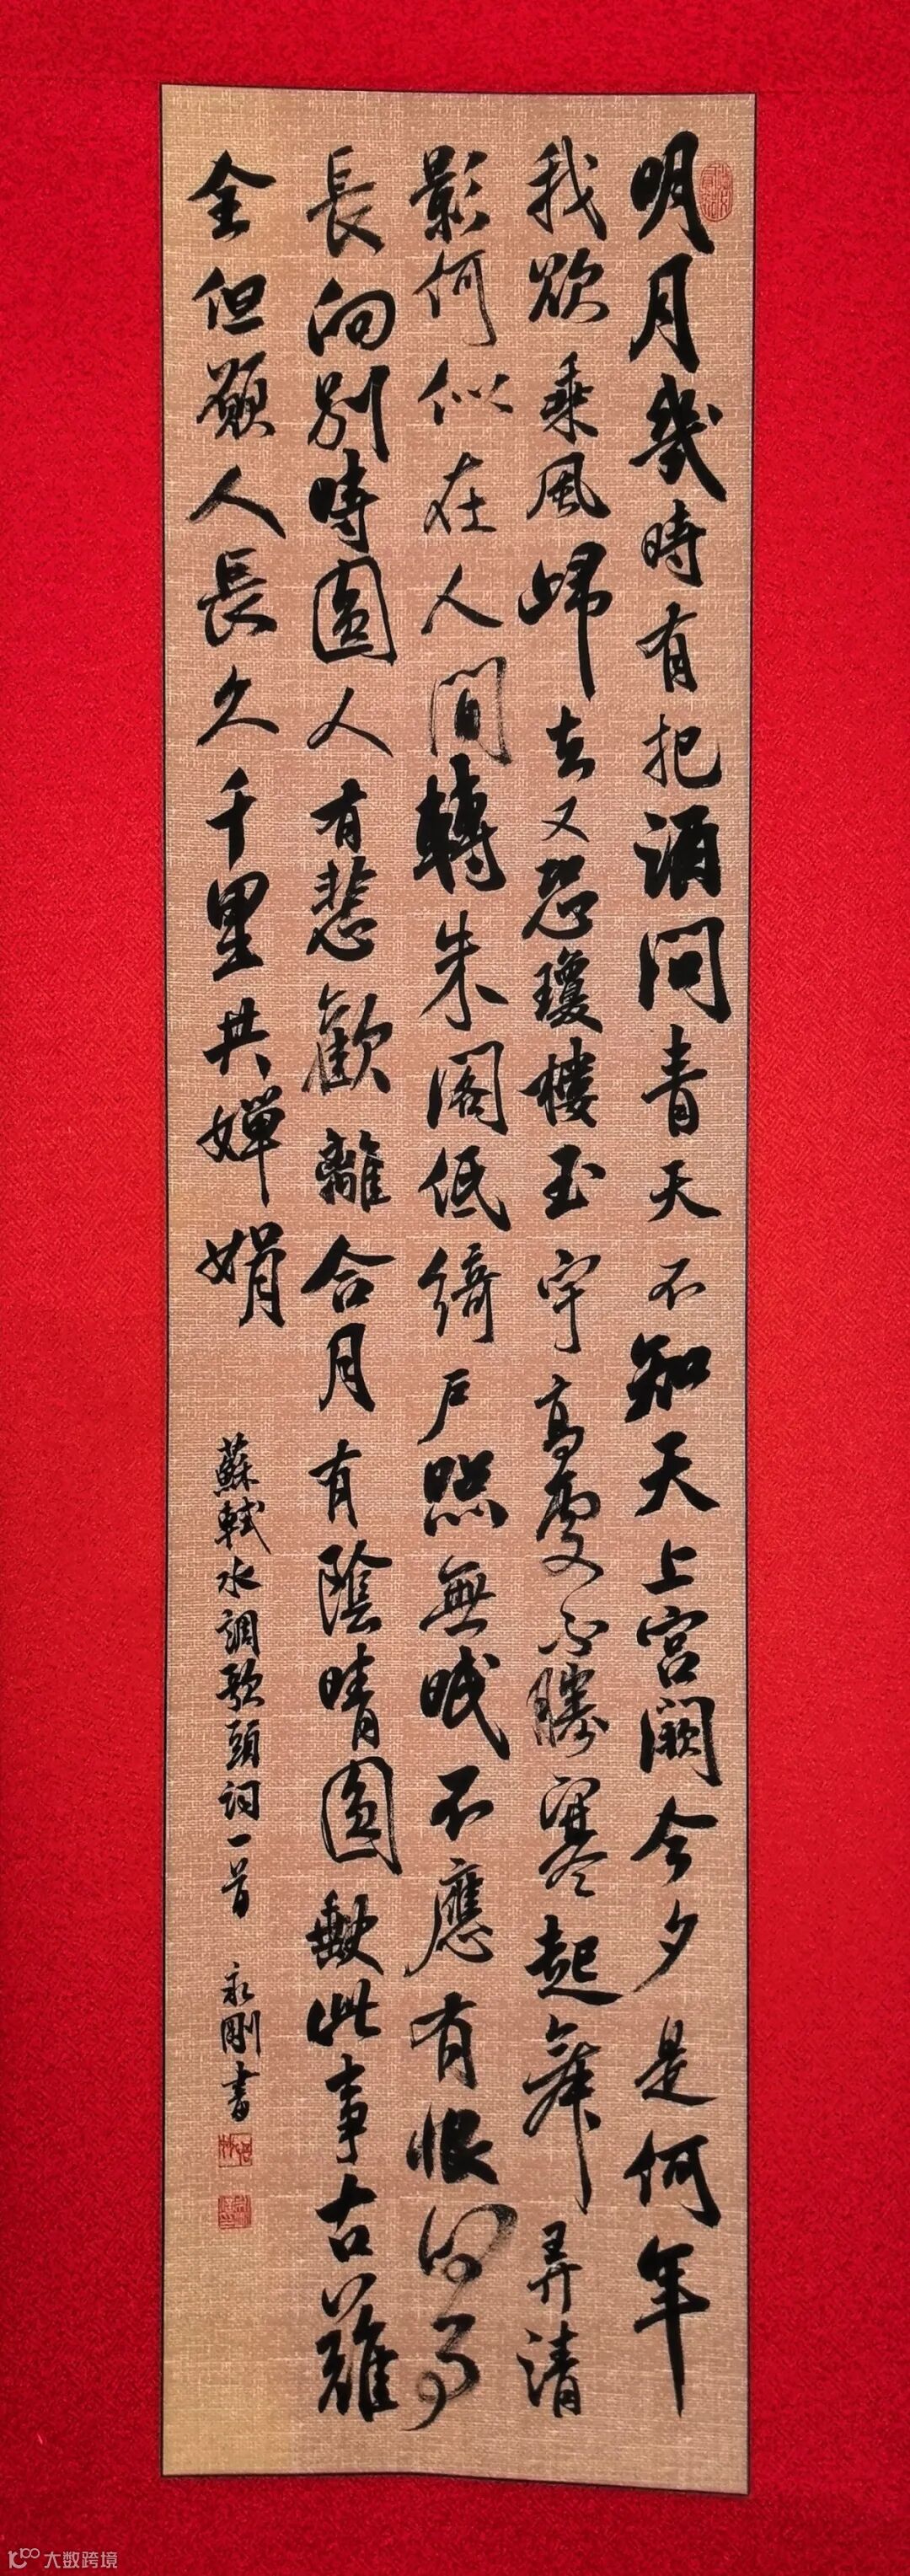 明月幾時有把酒問青天不知天上宮闕今夕是何年
我欲乘風歸去又恐瓊樓玉宇高處不勝寒起舞弄清
影何似在人間轉朱閣低綺戶照無眠不應有恨何事
長向別時圓人有悲歡離合月有陰晴圓缺此事古難
全但願人長久千里共嬋娟
蘇軾水調歌頭詞一首 永剛書
大数跨境